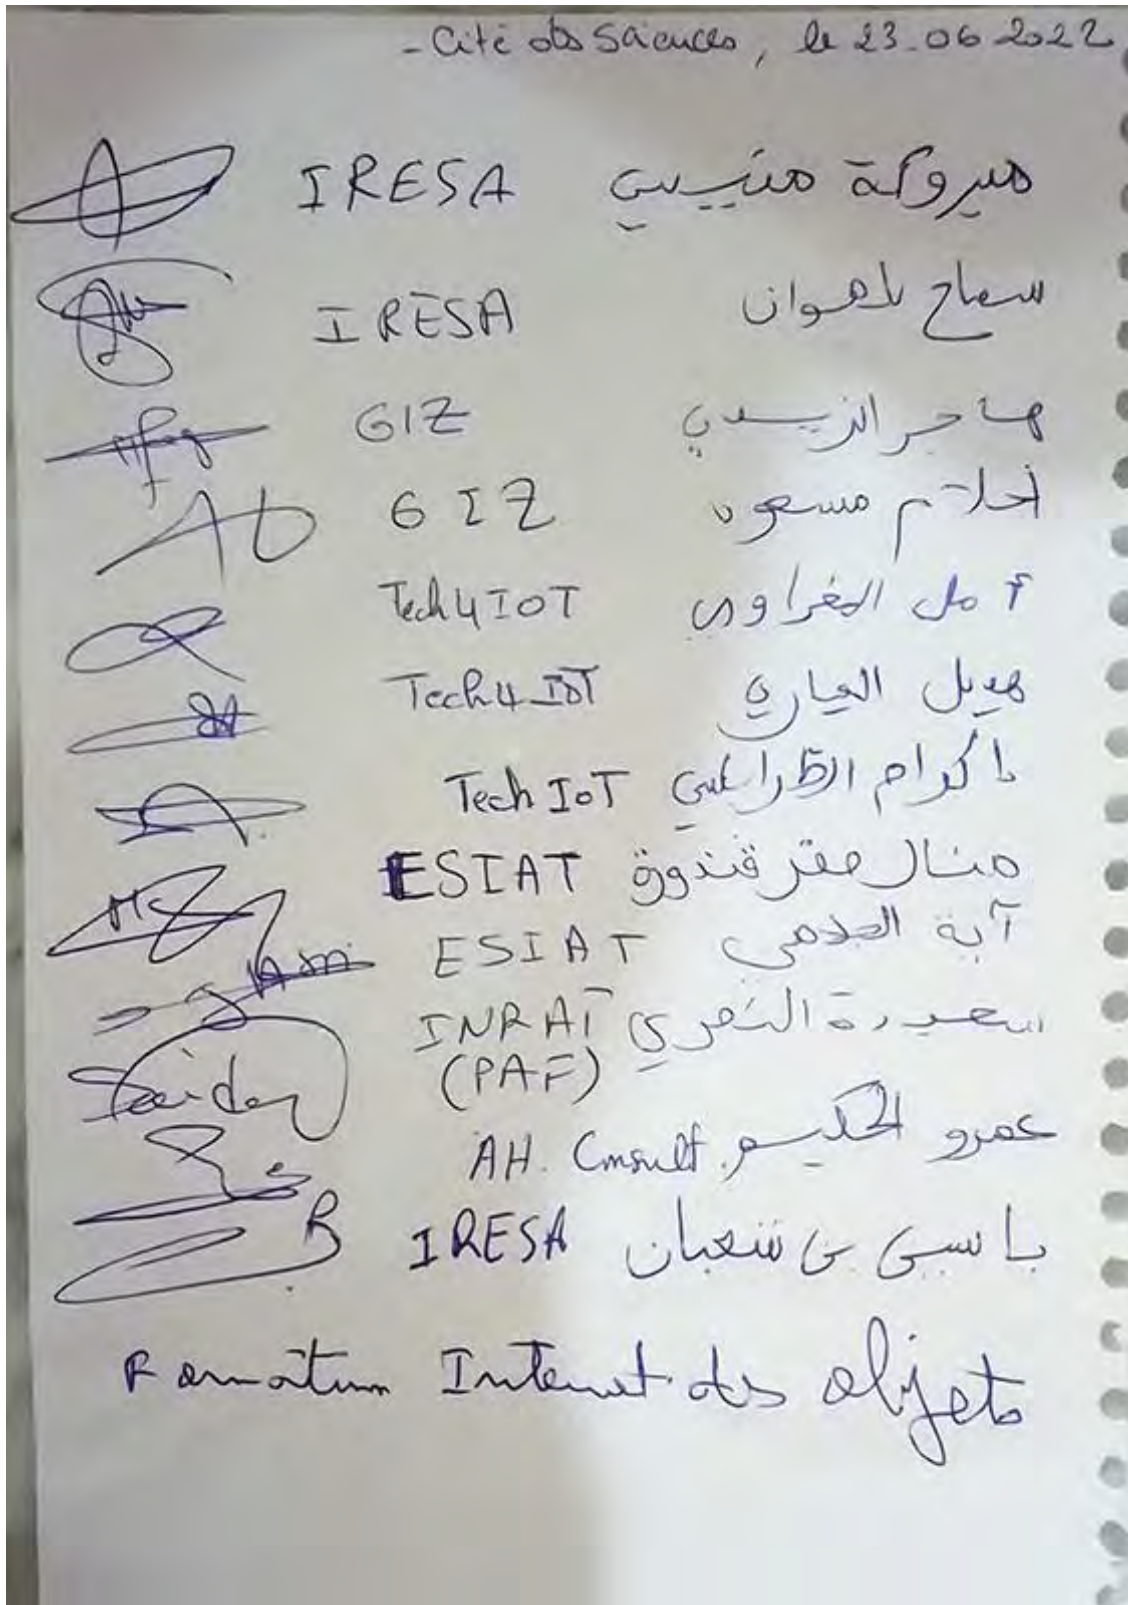 - Cité des Sciences, le 23-06-2022
IRESA مبروكة منيسي
IRESA سماح بلهوان
GIZ هاجر الزيدي
GIZ أحلام مسعود
Tech4IOT أمل المغراوي
Tech4IOT هديل العياري
Tech IoT إكرام الطرابلسي
ESIAT منال صقر قندورة
ESIAT آية
INRAT سعيدة
(PAF)
AH. Consult. عمرو الحكيم
IRESA بن شعبان
Formation Internet des objets